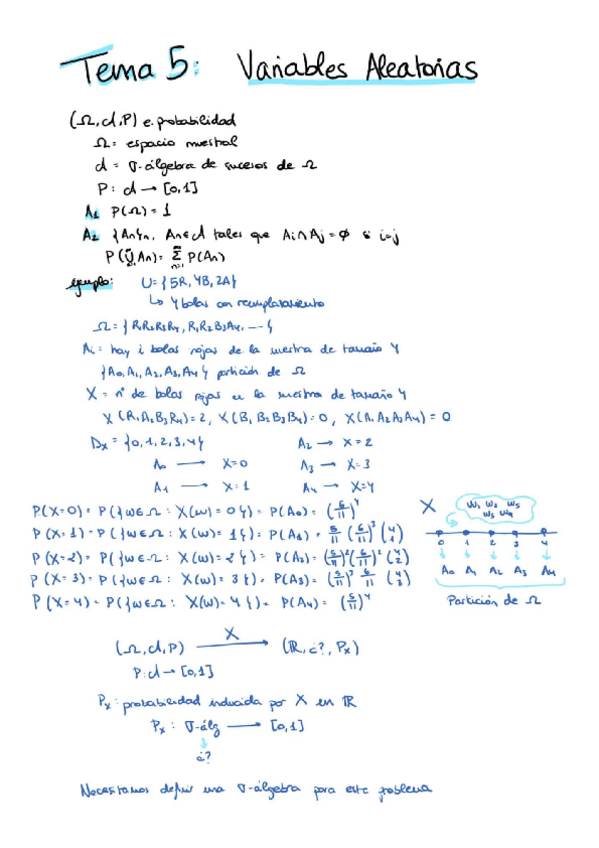 Tema 5: Variables Aleatorias
(Ω, A, P) e. probabilidad
Ω = espacio muestral
A = σ-álgebra de sucesos de Ω
P: A → [0,1]
A₁ P(Ω) = 1
A₂ {An}n, An∈A tales que Ai∩Aj = ∅ si i≠j
P(∪An) = Σ P(An)
ejemplo: U = {5R, 4B, 2A}
↳ 4 bolas con reemplazamiento
Ω = {R₁R₂R₃R₄, R₁R₂B₃A₄, ---}
Ai = hay i bolas rojas de la muestra de tamaño 4
{A₀, A₁, A₂, A₃, A₄} partición de Ω
X = nº de bolas rojas en la muestra de tamaño 4
X(R₁A₂B₃R₄) = 2, X(B₁B₂B₃B₄) = 0, X(A₁A₂A₃A₄) = 0
Dx = {0,1,2,3,4} A₂ → X = 2
A₀ → X=0 A₃ → X=3
A₁ → X=1 A₄ → X=4
P(X=0) = P({w∈Ω : X(w) = 0}) = P(A₀) = (6/11)⁴
P(X=1) = P({w∈Ω : X(w) = 1}) = P(A₁) = 5/11 (6/11)³ (4 1)
P(X=2) = P({w∈Ω : X(w) = 2}) = P(A₂) = (5/11)² (6/11)² (4 2)
P(X=3) = P({w∈Ω : X(w) = 3}) = P(A₃) = (5/11)³ 6/11 (4 3)
P(X=4) = P({w∈Ω : X(w) = 4}) = P(A₄) = (5/11)⁴
X w₁ w₂ w₅
w₃ w₄
0 1 2 3 4
A₀ A₁ A₂ A₃ A₄
Partición de Ω
X
(Ω, A, P) → (ℝ, ¿?, Px)
P: A → [0,1]
Px: probabilidad inducida por X en ℝ
Px : σ-álg → [0,1]
¿?
Necesitamos definir una σ-álgebra para este problema